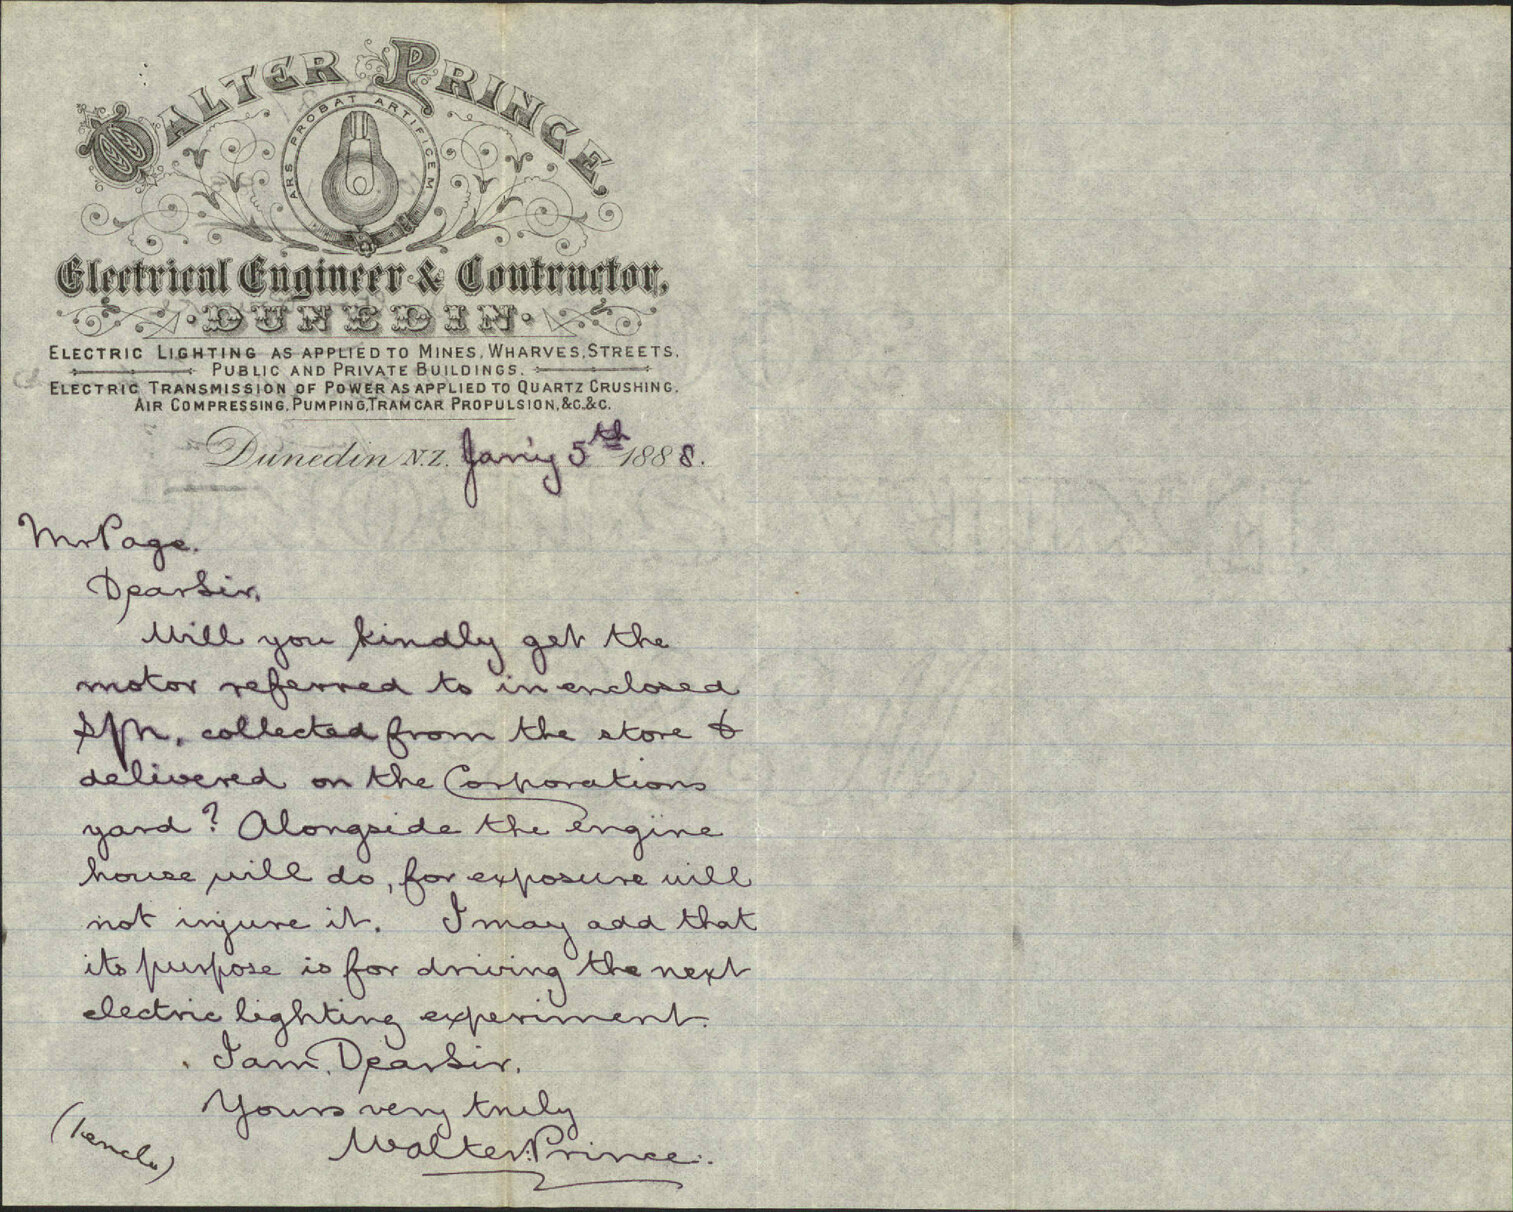 WALTER PRINCE,
ARS PROBAT ARTIFICEM
Electrical Engineer & Contractor,
· DUNEDIN ·
ELECTRIC LIGHTING AS APPLIED TO MINES, WHARVES, STREETS,
PUBLIC AND PRIVATE BUILDINGS.
ELECTRIC TRANSMISSION OF POWER AS APPLIED TO QUARTZ CRUSHING,
AIR COMPRESSING, PUMPING, TRAMCAR PROPULSION, &C. &C.
Dunedin N.Z. Jan'y 5th 1888.
Mr Page.
Dear Sir,
Will you kindly get the
motor referred to in enclosed
S/N, collected from the store &
delivered on the Corporations
yard? Alongside the engine
house will do, for exposure will
not injure it. I may add that
its purpose is for driving the next
electric lighting experiment.
I am, Dear Sir,
Yours very truly
Walter Prince.
(1 enclo)